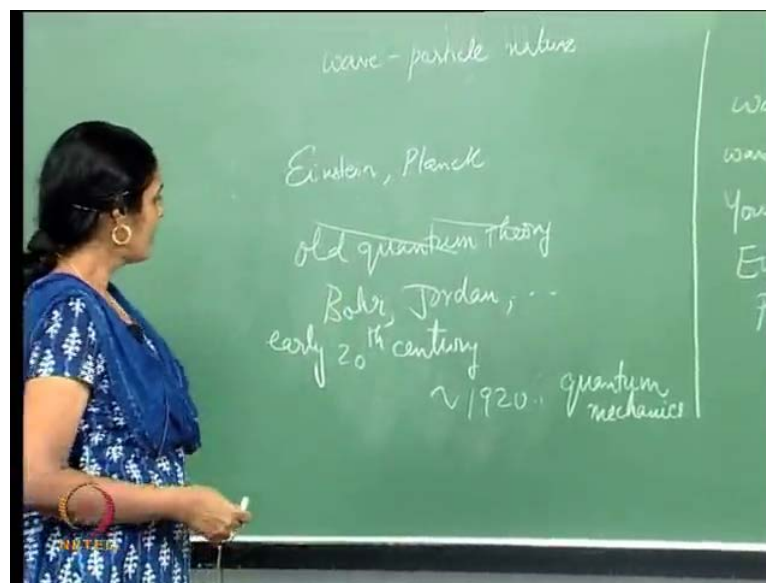 wave - particle nature
Einstein, Planck
old quantum Theory
Bohr, Jordan, ...
early 20th century
~ 1920 : quantum
mechanics
wa
wav
You
NPTEL